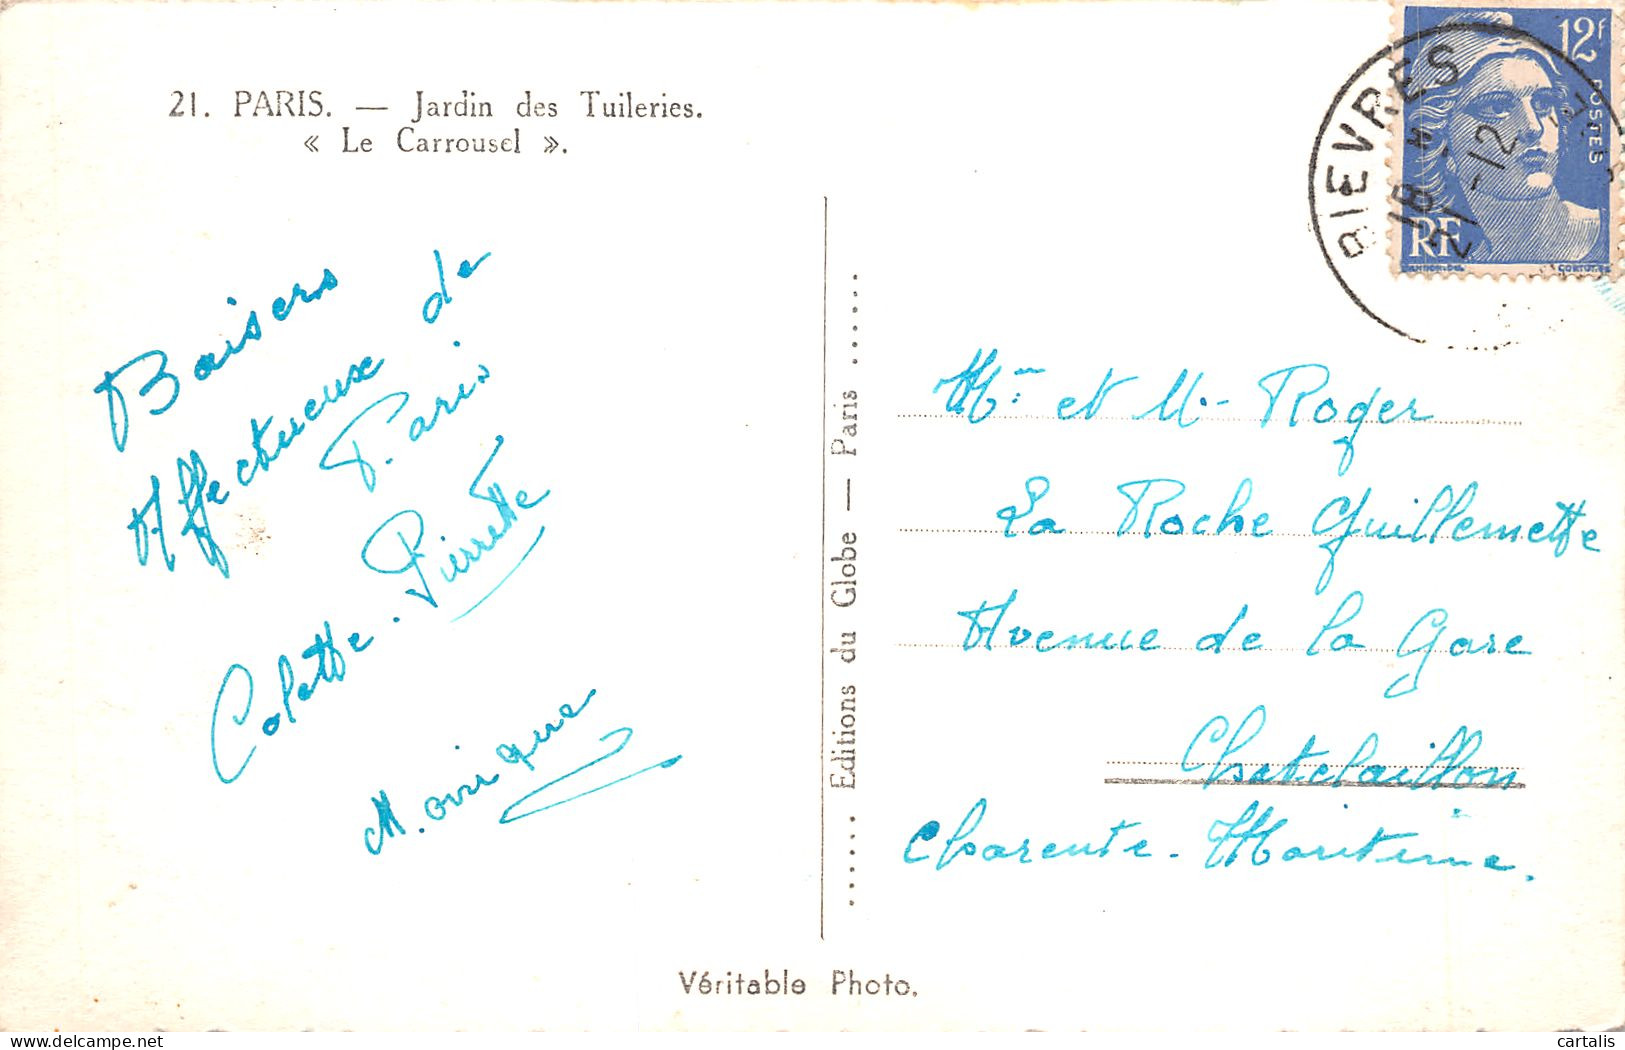 21. PARIS. — Jardin des Tuileries.
« Le Carrousel ».
Baisers
Affectueux de
Paris
Colette - Pierrette
Monique
..... Editions du Globe — Paris .....
12f
POSTES
RF
BIEVRES
18 H
21 -12
Mme et M. Roger
La Roche Guillemette
Avenue de la Gare
Chatelaillon
Charente-Maritime.
Véritable Photo.
cartalis